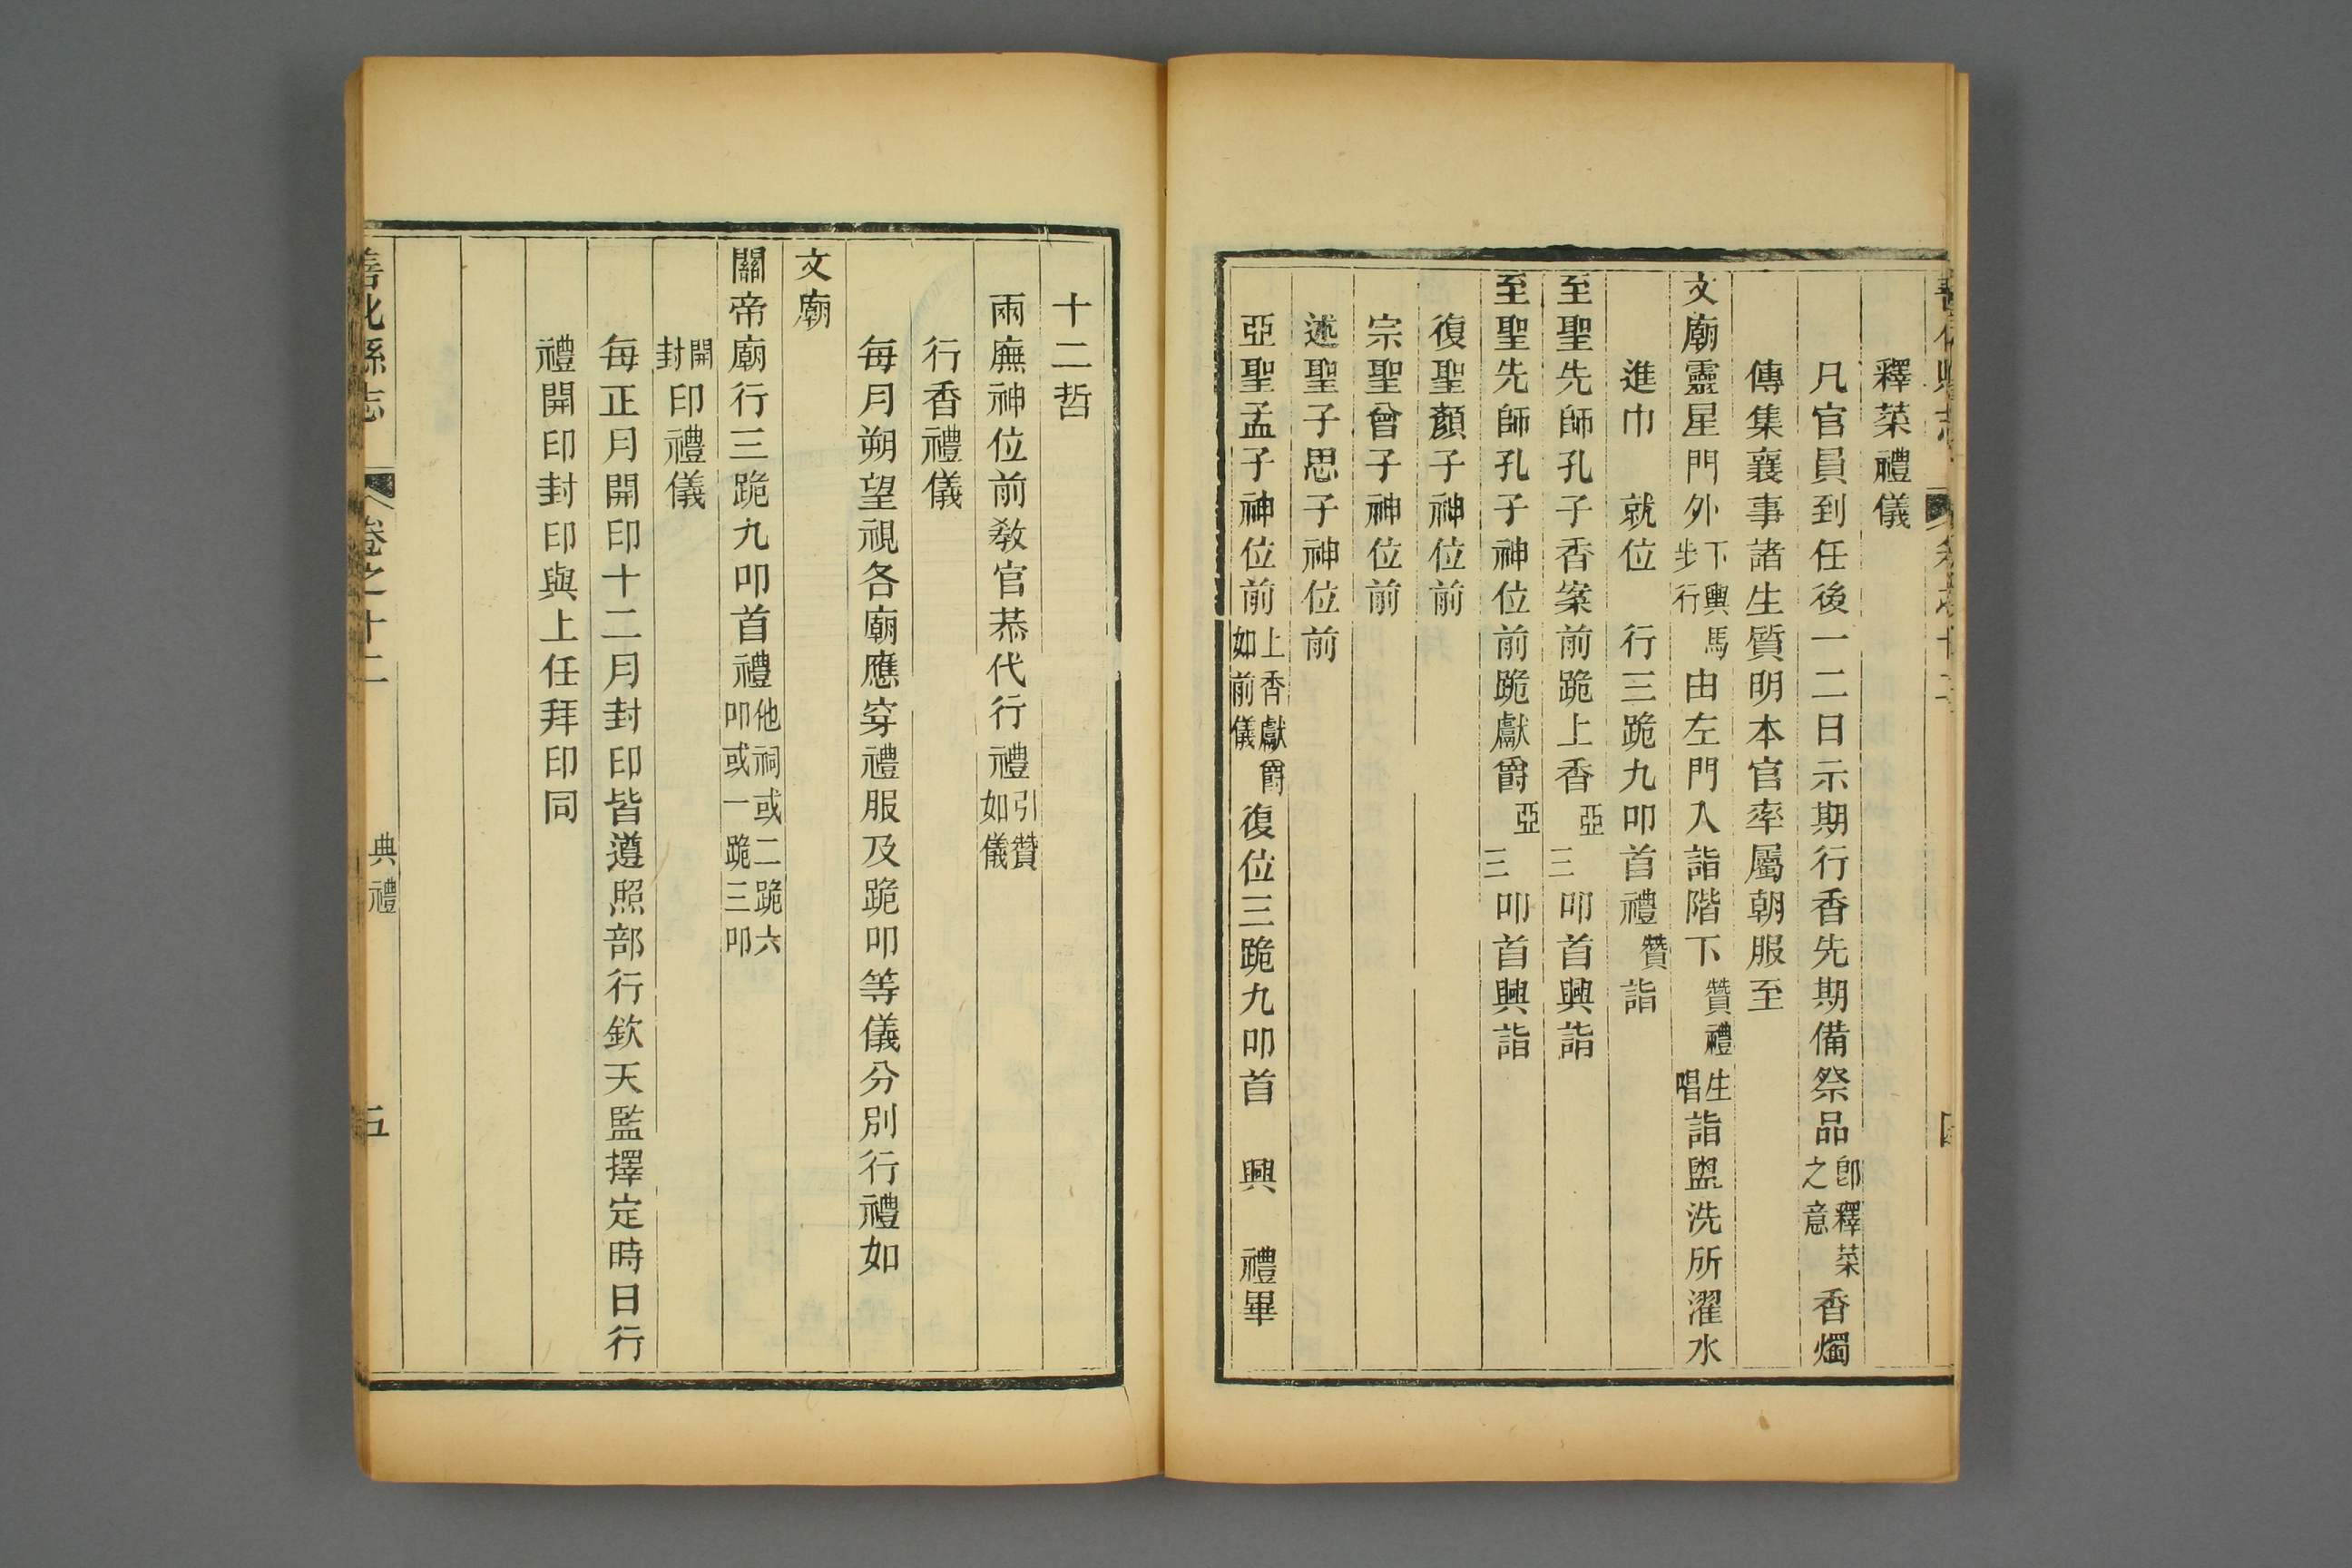 釋菜禮儀
凡官員到任後一二日示期行香先期備祭品卽釋菜之意香燭
傳集襄事諸生質明本官率屬朝服至
文廟靈星門外下輿馬步行由左門入詣階下贊禮生唱詣盥洗所濯水
進巾　就位　行三跪九叩首禮贊詣
至聖先師孔子香案前跪上香亞三叩首興詣
至聖先師孔子神位前跪獻爵亞三叩首興詣
復聖顏子神位前
宗聖曾子神位前
述聖子思子神位前
亞聖孟子神位前上香獻爵如前儀復位三跪九叩首　興　禮畢
十二哲
兩廡神位前教官恭代行禮引贊如儀
行香禮儀
每月朔望視各廟應穿禮服及跪叩等儀分別行禮如
文廟
關帝廟行三跪九叩首禮他祠或二跪六叩或一跪三叩
開封印禮儀
每正月開印十二月封印皆遵照部行欽天監擇定時日行
禮開印封印與上任拜印同
善化縣志　卷之十二　典禮　五